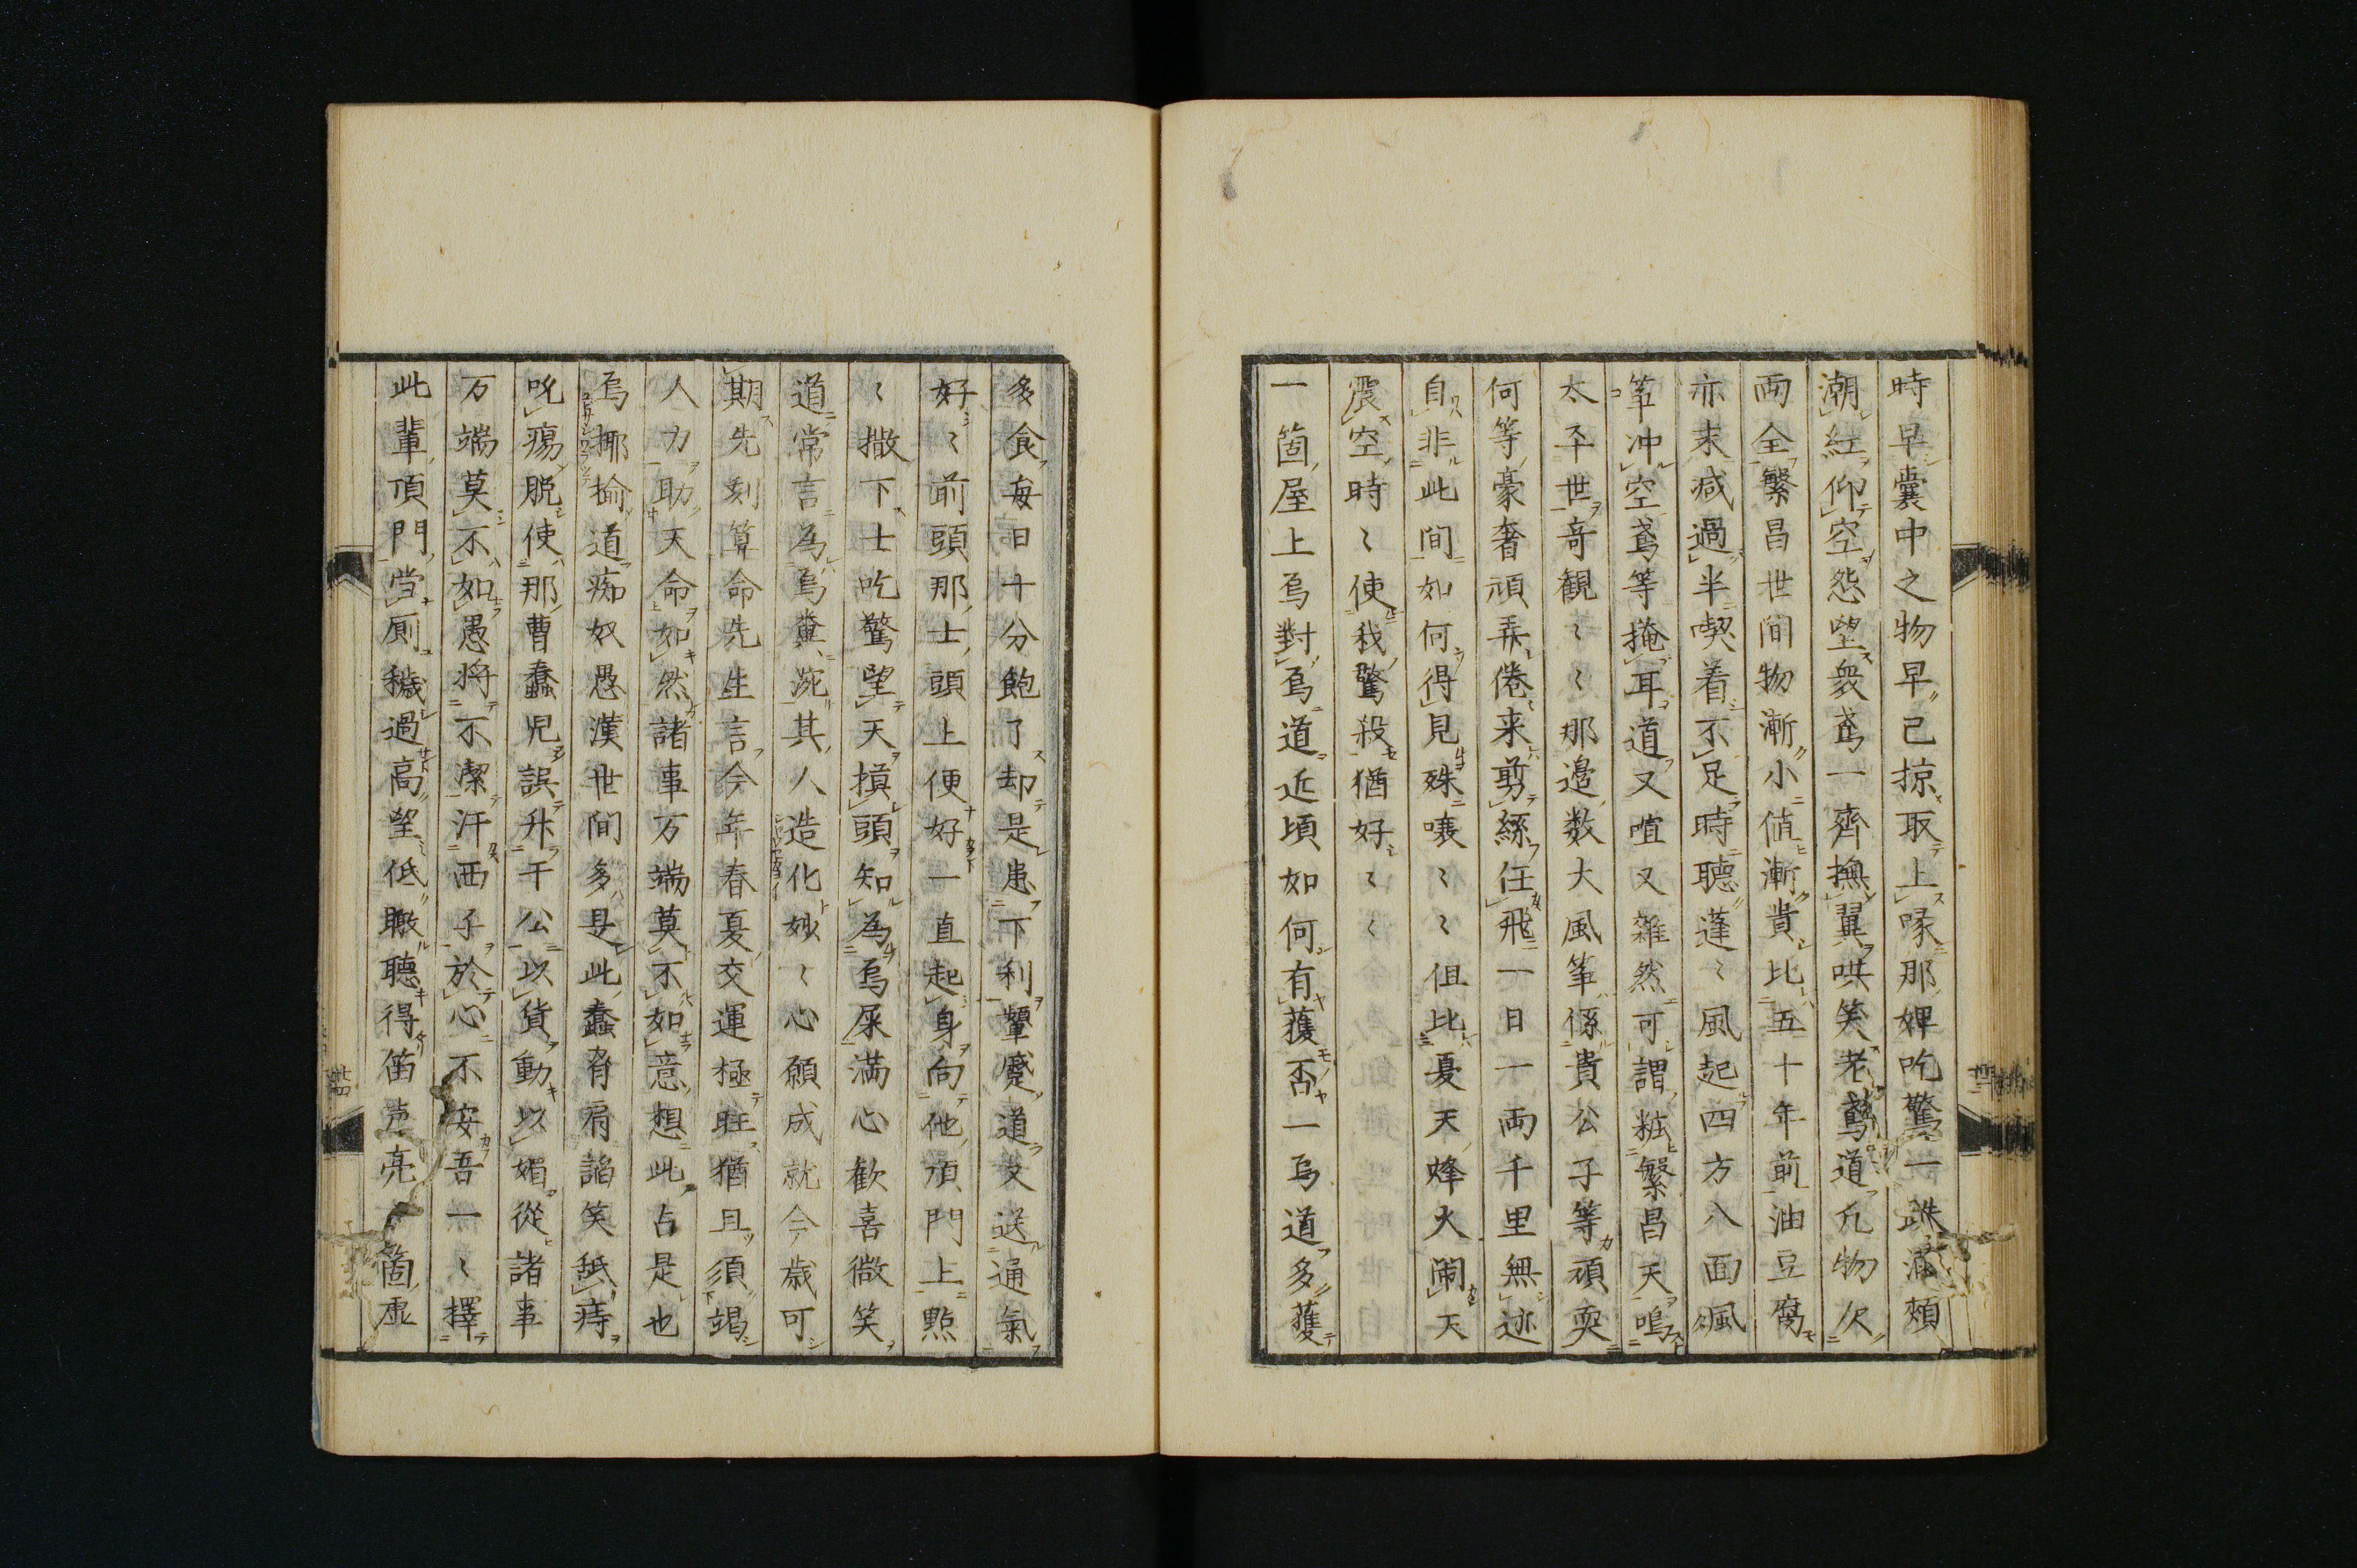 時早囊中之物早已掠取上喙那婢吃驚一跌滿頰
潮紅仰空怨望衆鳶一齊撫翼哄笑老鳶道凡物欠
両全繁昌世間物漸小値漸貴比五十年前油豆腐
亦末减過半喫着不足時聽蓬〻風起四方八面颯
筝冲空鳶等掩耳道又喧又雑然可謂粧繁昌天鳴
太平世奇観〻〻那邉数大風筝係貴公子等頑耍
何等豪奢頑弄倦来剪絲任飛一日一両千里無迹
自非此間如何得見殊嚷〻〻但比憂天烽火閙天
震空時〻使我驚殺猶好〻〻
一箇屋上烏對烏道近頃如何有獲否一烏道多獲
多食毎日十分飽了却是患下利顰蹙道支送通氣
好〻前頭那士頭上便好一直起身向他頂門上點
〻撒下士吃驚望天摸頭知為烏屎満心歓喜微笑
道常言為烏糞涴其人造化妙〻心願成就今歳可
期先刻算命先生言今年春夏交運極旺猶且須竭
人力助天命如然諸事万端莫不如意想此占是也
烏揶揄道痴奴愚漢世間多是此蠢脅肩謟笑舐痔
吮瘍脱使那曹蠢児誤升干公以貨動以媚從諸事
万端莫不如愚将不潔汗西子於心不安吾一〻擇
此輩頂門当厠穢過高望低瞰聽得笛声亮箇虚
廿四